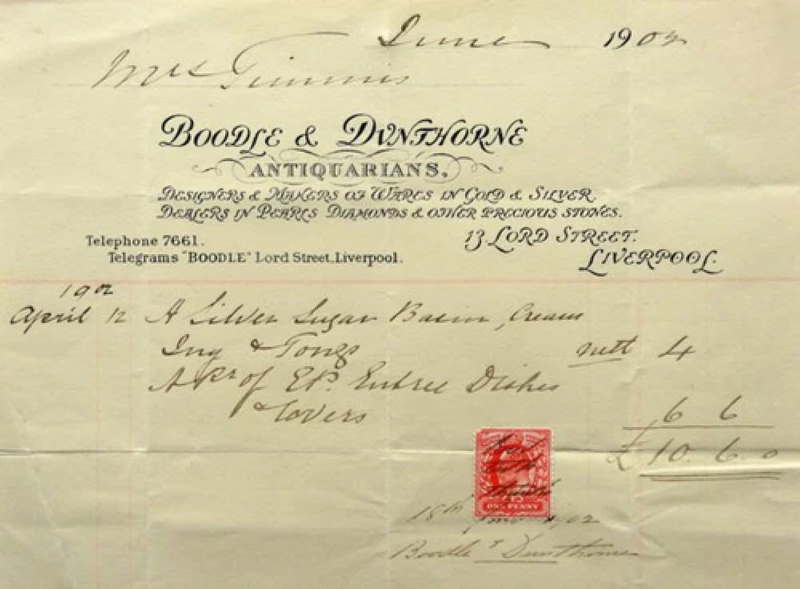 June 1902
Mrs Timmis
BOODLE & DUNTHORNE
ANTIQUARIANS,
DESIGNERS & MAKERS OF WARES IN GOLD & SILVER.
DEALERS IN PEARLS DIAMONDS & OTHER PRECIOUS STONES.
Telephone 7661.
13 LORD STREET.
Telegrams "BOODLE" Lord Street, Liverpool.
LIVERPOOL.
1902
April 12 A Silver Sugar Basin, Cream
Jug & Tongs nett 4
A Pr of E.P. Entree Dishes
& Covers 6 6
£ 10. 6. 0
Recd
with
thanks
ONE PENNY
18th June 1902
Boodle & Dunthorne